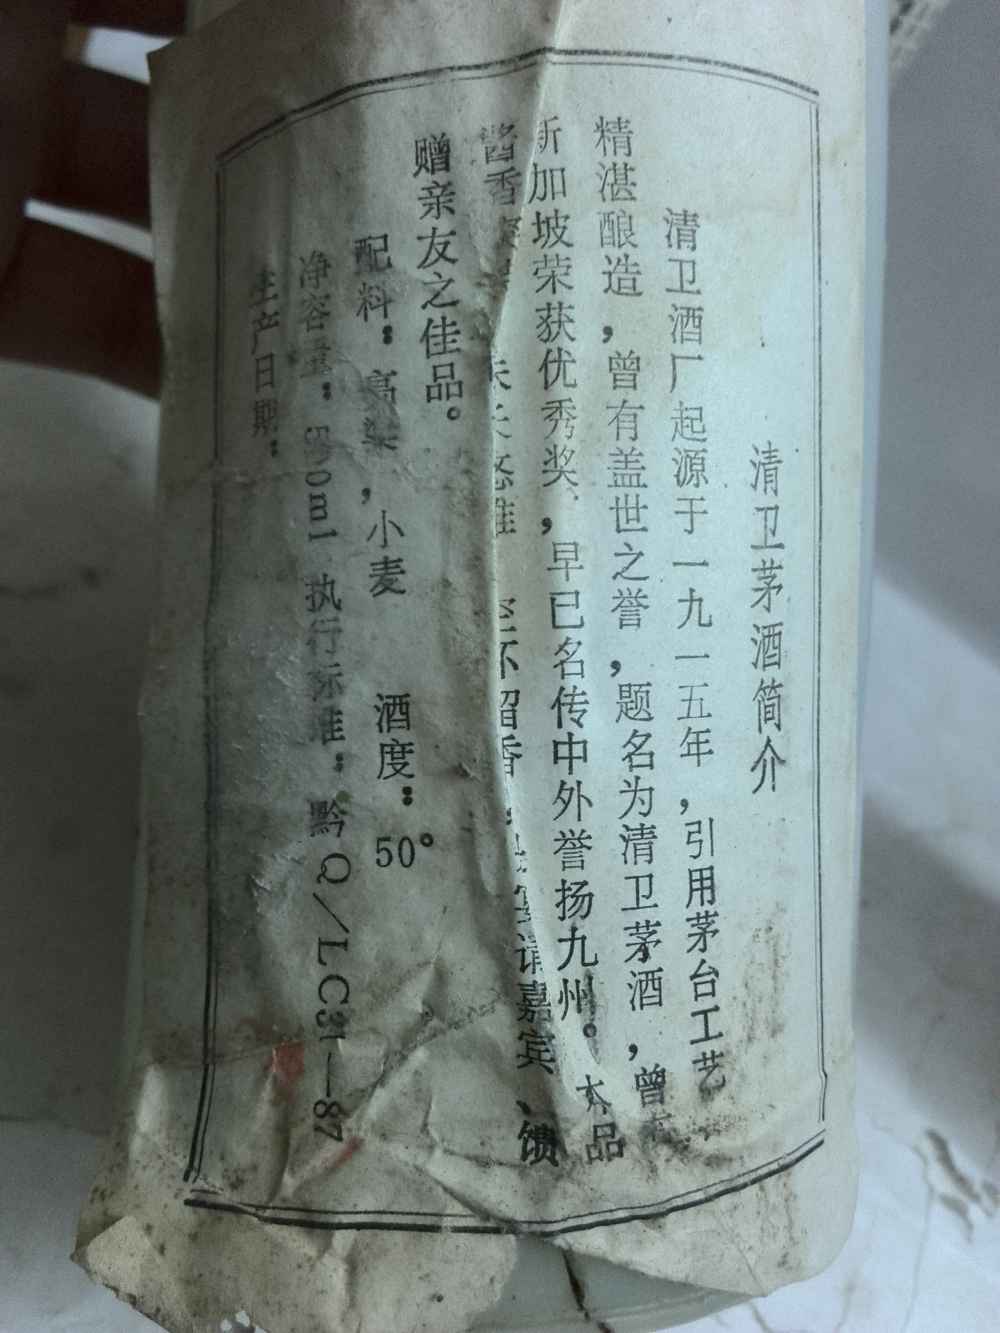 清卫茅酒简介
清卫酒厂起源于一九一五年，引用茅台工艺
精湛酿造，曾有盖世之誉，题名为清卫茅酒，曾
新加坡荣获优秀奖，早已名传中外誉扬九州。本品
酱香 留香 请嘉宾、馈
赠亲友之佳品。
配料：高粱，小麦 酒度：50°
净容量：550ml 执行标准：黔Q/LC31—87
生产日期：